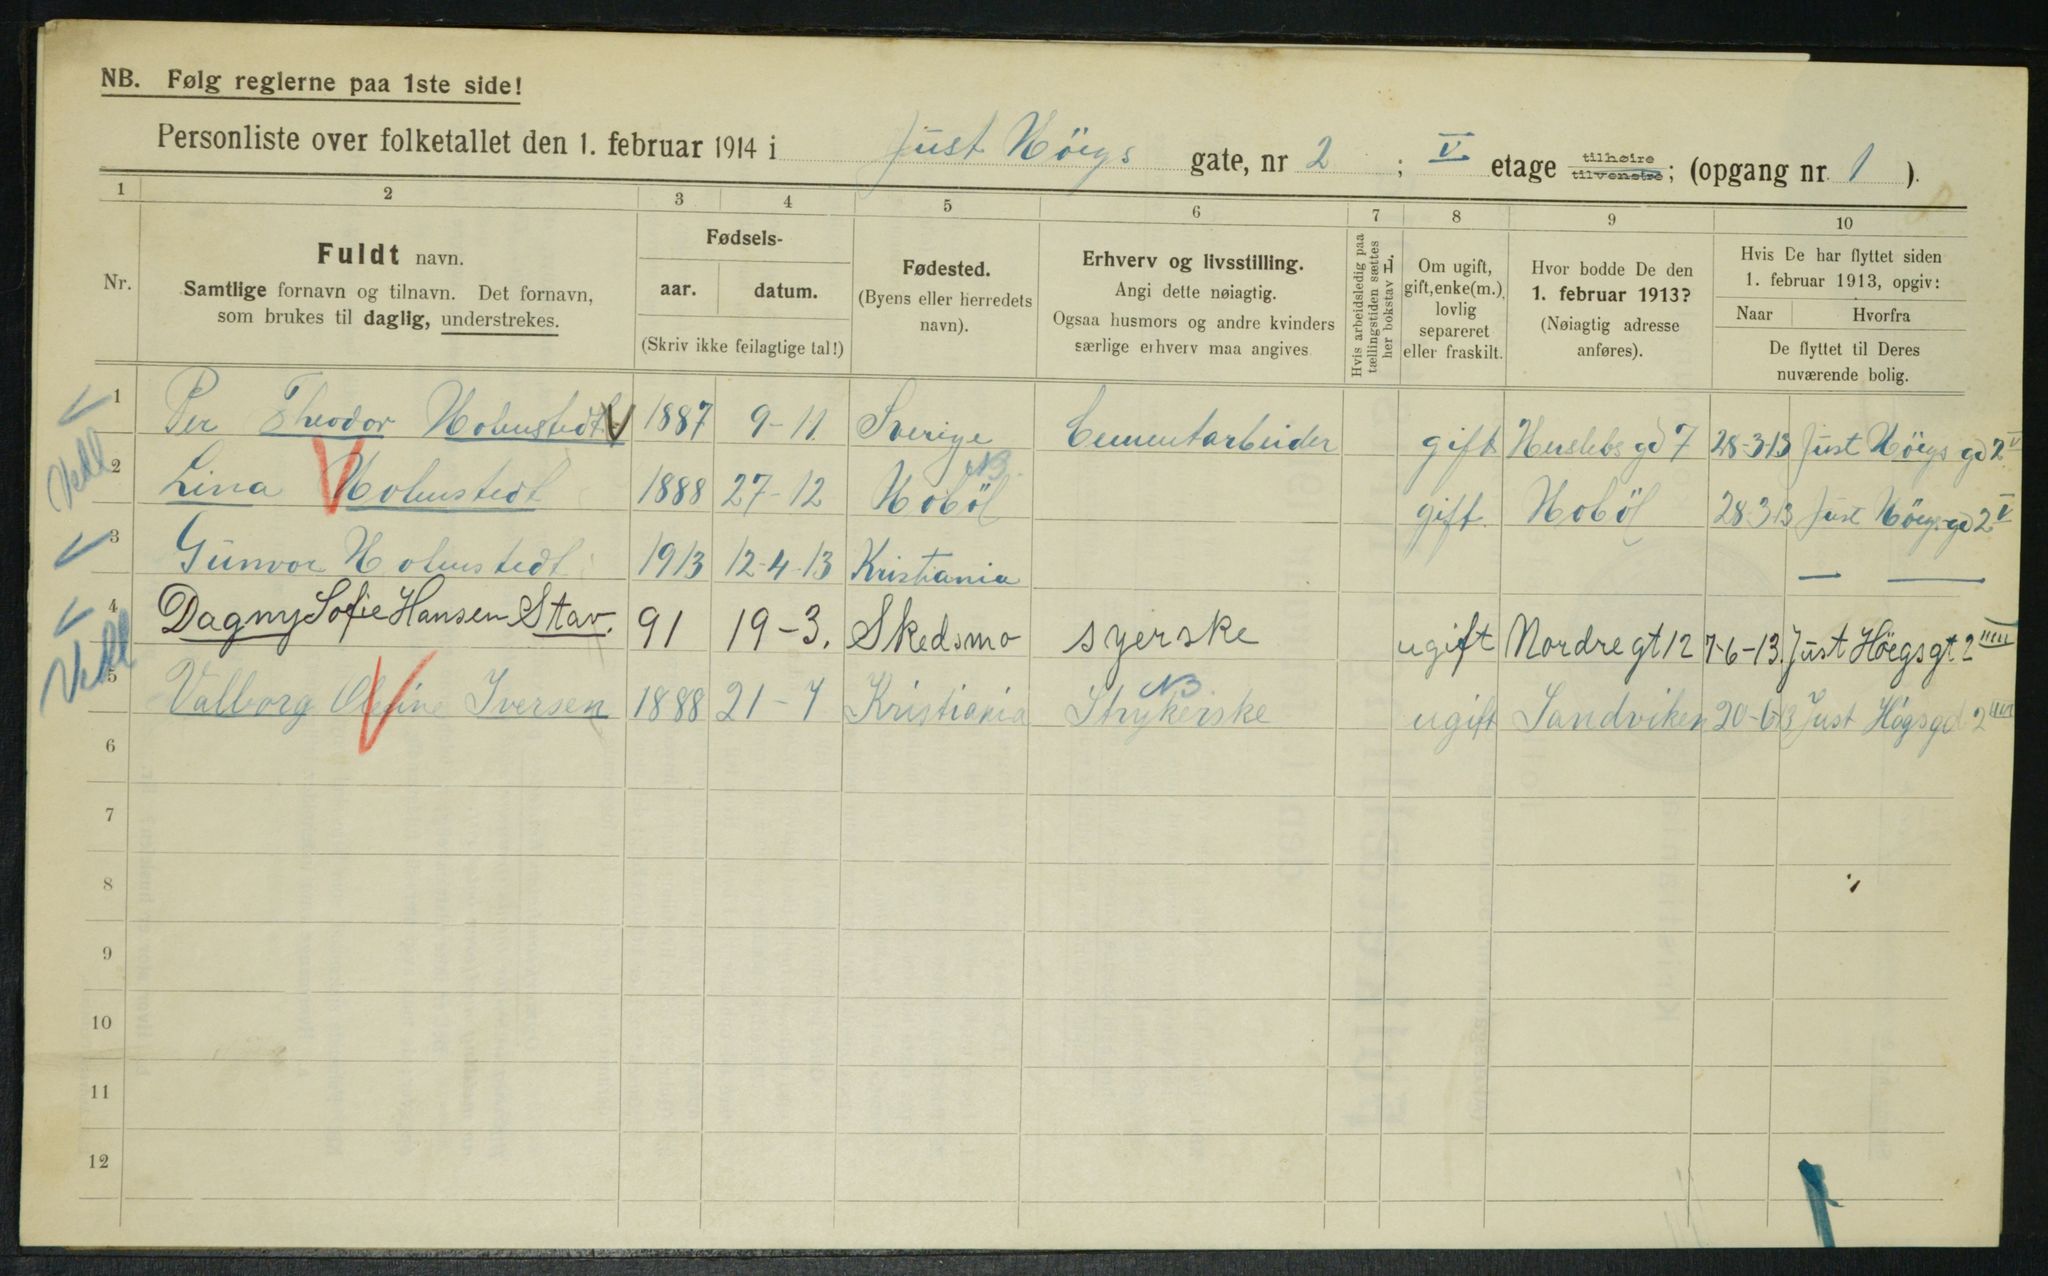 NB. Følg reglerne paa 1ste side!
Personliste over folketallet den 1. februar 1914 i Just Höegs gate, nr 2 ; V etage tilhøire tilvenstre; (opgang nr. 1 ).
1 2 3 4 5 6 7 8 9 10
Nr.
Fuldt navn.
Samtlige fornavn og tilnavn. Det fornavn,
som brukes til daglig, understrekes.
Fødsels-
aar. datum.
(Skriv ikke feilagtige tal!)
Fødested.
(Byens eller herredets
navn).
Erhverv og livsstilling.
Angi dette nøiagtig.
Ogsaa husmors og andre kvinders
særlige erhverv maa angives
Hvis arbeidsledig paa
tællingstiden sættes
her bokstav L.
Om ugift,
gift, enke(m.),
lovlig
separeret
eller fraskilt.
Hvor bodde De den
1. februar 1913?
(Nøiagtig adresse
anføres).
Hvis De har flyttet siden
1. februar 1913, opgiv:
Naar Hvorfra
De flyttet til Deres
nuværende bolig.
1 Per Theodor Holmstedt 1887 9-11 Sverige Cementarbeider gift Herslebs gd 7 28-3-13 Just Höegs gd 2 V
2 Lina Holmstedt 1888 27-12 Hoböl NB. gift Hoböl 28-3-13 Just Höegs gd 2 V
3 Gunvor Holmstedt 1913 12-4-13 Kristiania — —
4 Dagny Sofie Hansen Stav. 91 19-3. Skedsmo syerske ugift Nordre gt 12 7-6-13. Just Höegs gt. 2
5 Valborg Iversen 1888 21-7 Kristiania Strykerske NB ugift Sandviken 20-6-13 Just Høgsgd 2
6
7
8
9
10
11
12